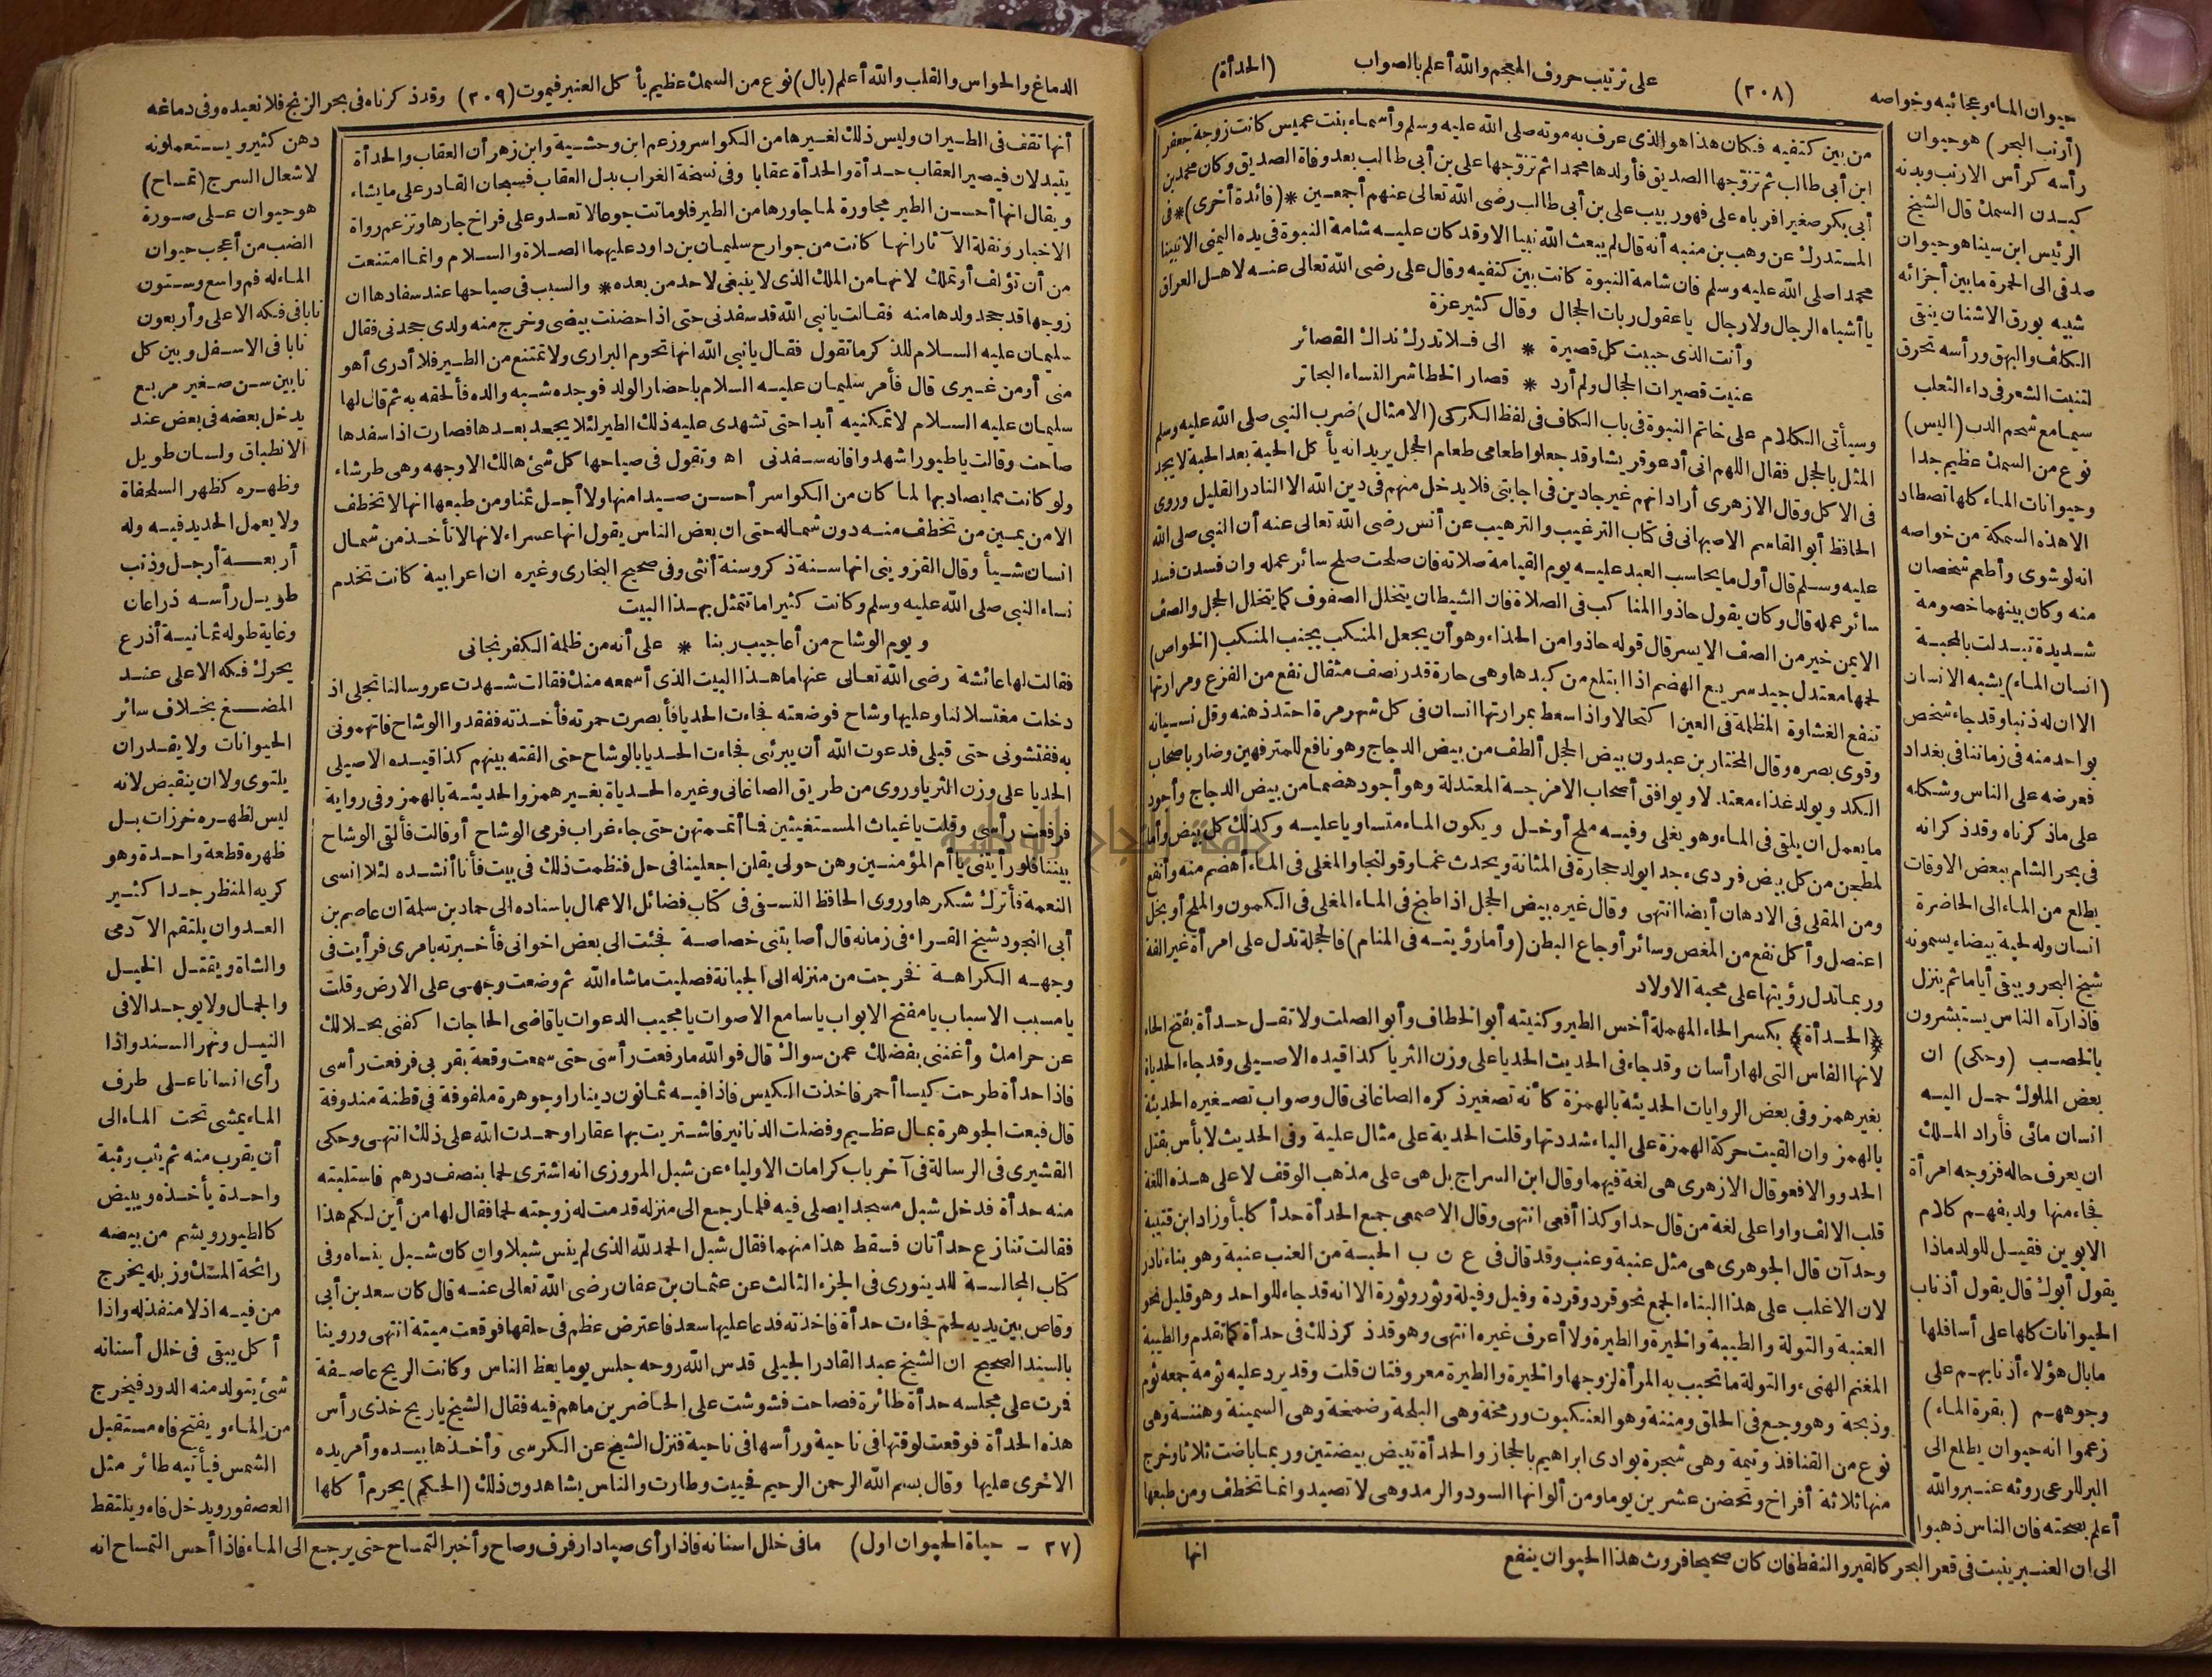 حيوان الماء وعجائبه وخواصه (٢٠٨) على ترتيب حروف المعجم والله أعلم بالصواب (الحدأة)
من بين كتفيه فكان هذا هو الذى عرف به موته صلى الله عليه وسلم وأسماء بنت عميس كانت زوجة جعفر
ابن أبى طالب ثم تزوّجها الصديق فأولدها محمدا ثم تزوّجها على بن أبى طالب بعد وفاة الصديق وكان محمد بن
أبى بكر صغيرا فرباه على فهو ربيب على بن أبى طالب رضى الله تعالى عنهم أجمعين * (فائدة أخرى) * فى
المستدرك عن وهب بن منبه أنه قال لم يبعث الله نبيا الا وقد كان عليه شامة النبوة فى يده اليمنى الا نبينا
محمدا صلى الله عليه وسلم فان شامة النبوة كانت بين كتفيه وقال على رضى الله تعالى عنه لاهل العراق
يا أشباه الرجال ولا رجال يا عقول ربات الحجال وقال كثير عزة
وأنت الذى حببت كل قصيرة * الى فلا تدرك نداك القصائر
عنيت قصيرات الحجال ولم أرد * قصار الخطا شر النساء البحاتر
وسيأتى الكلام على خاتم النبوة فى باب الكاف فى لفظ الكركى (الامثال) ضرب النبى صلى الله عليه وسلم
المثل بالحجل فقال اللهم انى أدعو قريشا وقد جعلوا طعامى طعام الحجل يريد انه يأكل الحبة بعد الحبة لا يجد
فى الاكل وقال الازهرى أراد انهم غير جادين فى اجابتى فلا يدخل منهم فى دين الله الا النادر القليل وروى
الحافظ أبو القاسم الاصبهانى فى كتاب الترغيب والترهيب عن أنس رضى الله تعالى عنه أن النبى صلى الله
عليه وسلم قال أول ما يحاسب العبد عليه يوم القيامة صلاته فان صلحت صلح سائر عمله وان فسدت فسد
سائر عمله قال وكان يقول حاذوا المناكب فى الصلاة فان الشيطان يتخلل الصفوف كما يتخلل الحجل والصف
الايمن خير من الصف الايسر قال قوله حاذوا من الحذاء وهو أن يجعل المنكب بجنب المنكب (الخواص)
لحمها معتدل جيد سريع الهضم اذا ابتلع من كبدها وهى حارة قدر نصف مثقال نفع من الفزع ومرارتها
تنفع الغشاوة المظلمة فى العين اكتحالا واذا سعط بمرارتها انسان فى كل شهر مرة احتد ذهنه وقل نسيانه
وقوى بصره وقال المختار بن عبدون بيض الحجل ألطف من بيض الدجاج وهو نافع للمترفهين وضار باصحاب
الكد ويولد غذاء معتدلا ويوافق أصحاب الامزجة المعتدلة وهو أجود هضما من بيض الدجاج وأجود
ما يعمل ان يلقى فى الماء وهو يغلى وفيه ملح أو خل ويكون الماء متساويا عليه وكذلك كل بيض وأما
لمطجن من كل بيض فردىء جدا يولد حجارة فى المثانة ويحدث غما وقولنجا والمغلى فى الماء أهضم منه وأنفع
ومن المقلى فى الادهان أيضا انتهى وقال غيره بيض الحجل اذا طبخ فى الماء المغلى فى الكمون والملح أو بخل
اعنصل وأكل نفع من المغص وسائر أوجاع البطن (وأما رؤيته فى المنام) فالحجلة تدل على امرأة غير الفة
وربما تدل رؤيتها على محبة الاولاد
﴿الحدأة﴾ بكسر الحاء المهملة أخس الطير وكنيته أبو الخطاف وأبو الصلت ولا تقل حدأة بفتح الحاء
لانها الفاس التى لها رأسان وقد جاء فى الحديث الحديا على وزن الثريا كذا قيده الاصيلى وقد جاء الحدياة
بغير همز وفى بعض الروايات الحديئة بالهمزة كأنه تصغير ذكره الصاغانى قال وصواب تصغيره الحديئة
بالهمز وان القيت حركة الهمزة على الياء شددتها وقلت الحدية على مثال علية وفى الحديث لا بأس بقتل
الحدو والافعو قال الازهرى هى لغة فيهما وقال ابن السراج بل هى على مذهب الوقف لا على هذه اللغة
قلب الالف واوا على لغة من قال حدا وكذا أفعى انتهى وقال الاصمعى جمع الحدأة حدأ كلبأ وزاد ابن قتيبة
وحدآن قال الجوهرى هى مثل عنبة وعنب وقد قال فى ع ن ب الحبة من العنب عنبة وهو بناء نادر
لان الاغلب على هذا البناء الجمع نحو قرد وقردة وفيل وفيلة وثور وثورة الا انه قد جاء للواحد وهو قليل نحو
العنبة والتولة والطيبة والخيرة والطيرة ولا أعرف غيره انتهى وهو قد ذكر ذلك فى حدأة كما تقدم والطيبة
المغنم الهنىء والتولة ما تحبب به المرأة لزوجها والخيرة والطيرة معروفتان قلت وقد يرد عليه ثومة جمعه ثوم
وذبحة وهو وجع فى الحلق ومننة وهو العنكبوت ورمخة وهى البلحة وضمخة وهى السمينة وهننة وهى
نوع من القنافذ وتيمة وهى شجرة بوادى ابراهيم بالحجاز والحدأة تبيض بيضتين وربما باضت ثلاثا وخرج
منها ثلاثة أفراخ وتحضن عشرين يوما ومن ألوانها السود والرمد وهى لا تصيد وانما تخطف ومن طبعها
انها
(أرنب البحر) هو حيوان
رأسه كرأس الارنب وبدنه
كبدن السمك قال الشيخ
الرئيس ابن سينا هو حيوان
صدفى الى الحمرة ما بين أجزائه
شبيه بورق الاشنان ينقى
الكلف والبهق ورأسه تحرق
لتنبت الشعر فى داء الثعلب
سيما مع شحم الدب (اليس)
نوع من السمك عظيم جدا
وحيوانات الماء كلها تصطاد
الا هذه السمكة من خواصه
انه لو شوى وأطعم شخصان
منه وكان بينهما خصومة
شديدة تبدلت بالمحبة
(انسان الماء) يشبه الانسان
الا ان له ذنبا وقد جاء شخص
بواحد منه فى زماننا فى بغداد
فعرضه على الناس وشكله
على ما ذكرناه وقد ذكر انه
فى بحر الشام ببعض الاوقات
يطلع من الماء الى الحاضرة
انسان وله لحية بيضاء يسمونه
شيخ البحر ويبقى أياما ثم ينزل
فاذا رآه الناس يستبشرون
بالخصب (وحكى) ان
بعض الملوك حمل اليه
انسان مائى فأراد الملك
ان يعرف حاله فزوجه امرأة
فجاء منها ولد يفهم كلام
الابوين فقيل للولد ماذا
يقول أبوك قال يقول أذناب
الحيوانات كلها على أسافلها
ما بال هؤلاء أذنابهم على
وجوههم (بقرة الماء)
زعموا انه حيوان يطلع الى
البر للرعى روثه عنبر والله
أعلم بصحته فان الناس ذهبوا
الى ان العنبر ينبت فى قعر البحر كالقير والنفط فان كان صحيحا فروث هذا الحيوان ينفع
الدماغ والحواس والقلب والله أعلم (بال) نوع من السمك عظيم يأكل العنبر فيموت (٢٠٩) وقد ذكرناه فى بحر الزنج فلا نعيده وفى دماغه
أنها تقف فى الطيران وليس ذلك لغيرها من الكواسر وزعم ابن وحشية وابن زهر أن العقاب والحدأة
يتبدلان فيصير العقاب حدأة والحدأة عقابا وفى نسخة الغراب بدل العقاب فسبحان القادر على ما يشاء
ويقال انها أحسن الطير مجاورة لما جاورها من الطير فلو ماتت جوعا لا تعدو على فراخ جارها وتزعم رواة
الاخبار ونقلة الآثار انها كانت من جوارح سليمان بن داود عليهما الصلاة والسلام وانما امتنعت
من أن تؤلف أو تملك لانها من الملك الذى لا ينبغى لاحد من بعده * والسبب فى صياحها عند سفادها ان
زوجها قد جحد ولدها منه فقالت يا نبى الله قد سفدنى حتى اذا حضنت بيضى وخرج منه ولدى جحدنى فقال
سليمان عليه السلام للذكر ما تقول فقال يا نبى الله انها تحوم البرارى ولا تمتنع من الطير فلا أدرى أهو
منى أو من غيرى قال فأمر سليمان عليه السلام باحضار الولد فوجده شبه والده فألحقه به ثم قال لها
سليمان عليه السلام لا تمكنيه أبدا حتى تشهدى عليه ذلك الطير لئلا يجحد بعدها فصارت اذا سفدها
صاحت وقالت يا طيور اشهدوا فانه سفدنى اه وتقول فى صياحها كل شئ هالك الا وجهه وهى طرشاء
ولو كانت مما يصاد بها لما كان من الكواسر أحسن صيدا منها ولا أجل ثمنا ومن طبعها انها لا تخطف
الا من يمين من تخطف منه دون شماله حتى ان بعض الناس يقول انها عسراء لانها لا تأخذ من شمال
انسان شيأ وقال القزوينى انها سنة ذكر وسنة أنثى وفى صحيح البخارى وغيره ان اعرابية كانت تخدم
نساء النبى صلى الله عليه وسلم وكانت كثيرا ما تتمثل بهذا البيت
ويوم الوشاح من أعاجيب ربنا * على أنه من ظلمة الكفر نجانى
فقالت لها عائشة رضى الله تعالى عنها ما هذا البيت الذى أسمعه منك فقالت شهدت عروسا لنا تجلى اذ
دخلت مغتسلا لنا وعليها وشاح فوضعته فجاءت الحديا فأبصرت حمرته فأخذته ففقدوا الوشاح فاتهمونى
به ففتشونى حتى قبلى فدعوت الله أن يبرئنى فجاءت الحديا بالوشاح حتى القته بينهم كذا قيده الاصيلى
الحديا على وزن الثريا وروى من طريق الصاغانى وغيره الحدياة بغير همز والحديئة بالهمز وفى رواية
فرفعت رأسى وقلت يا غياث المستغيثين فما أتممتهن حتى جاء غراب فرمى الوشاح أو قالت فألقى الوشاح
بيننا فلو رأيتنى يا أم المؤمنين وهن حولى يقلن اجعلينا فى حل فنظمت ذلك فى بيت فأنا أنشده لئلا انسى
النعمة فأترك شكرها وروى الحافظ النسفى فى كتاب فضائل الاعمال باسناده الى حماد بن سلمة ان عاصم بن
أبى النجود شيخ القراء فى زمانه قال أصابتنى خصاصة فجئت الى بعض اخوانى فأخبرته بامرى فرأيت فى
وجهه الكراهة فخرجت من منزله الى الجبانة فصليت ما شاء الله ثم وضعت وجهى على الارض وقلت
يا مسبب الاسباب يا مفتح الابواب يا سامع الاصوات يا مجيب الدعوات يا قاضى الحاجات اكفنى بحلالك
عن حرامك وأغننى بفضلك عمن سواك قال فو الله ما رفعت رأسى حتى سمعت وقعة بقربى فرفعت رأسى
فاذا حدأة طرحت كيسا أحمر فاخذت الكيس فاذا فيه ثمانون دينارا وجوهرة ملفوفة فى قطنة مندوفة
قال فبعت الجوهرة بمال عظيم وفضلت الدنانير فاشتريت بها عقارا وحمدت الله على ذلك انتهى وحكى
القشيرى فى الرسالة فى آخر باب كرامات الاولياء عن شبل المروزى انه اشترى لحما بنصف درهم فاستلبته
منه حدأة فدخل شبل مسجدا يصلى فيه فلما رجع الى منزله قدمت له زوجته لحما فقال لها من أين لكم هذا
فقالت تنازع حدأتان فسقط هذا منهما فقال شبل الحمد لله الذى لم ينس شبلا وان كان شبل ينساه وفى
كتاب المجالسة للدينورى فى الجزء الثالث عن عثمان بن عفان رضى الله تعالى عنه قال كان سعد بن أبى
وقاص بين يديه لحم فجاءت حدأة فاخذته فدعا عليها سعد فاعترض عظم فى حلقها فوقعت ميتة انتهى وروينا
بالسند الصحيح ان الشيخ عبد القادر الجيلى قدس الله روحه جلس يوما يعظ الناس وكانت الريح عاصفة
فمرت على مجلسه حدأة طائرة فصاحت فشوشت على الحاضرين ما هم فيه فقال الشيخ يا ريح خذى رأس
هذه الحدأة فوقعت لوقتها فى ناحية ورأسها فى ناحية فنزل الشيخ عن الكرسى وأخذها بيده وأمر يده
الاخرى عليها وقال بسم الله الرحمن الرحيم فحييت وطارت والناس يشاهدون ذلك (الحكم) يحرم أكلها
دهن كثير ويستعملونه
لاشعال السرج (تمساح)
هو حيوان على صورة
الضب من أعجب حيوان
الماء له فم واسع وستون
نابا فى فكه الاعلى وأربعون
نابا فى الاسفل وبين كل
نابين سن صغير مربع
يدخل بعضه فى بعض عند
الانطباق ولسان طويل
وظهره كظهر السلحفاة
ولا يعمل الحديد فيه وله
أربعة أرجل وذنب
طويل رأسه ذراعان
وغاية طوله ثمانية أذرع
يحرك فكه الاعلى عند
المضغ بخلاف سائر
الحيوانات ولا يقدر ان
يلتوى ولا ان ينقبض لانه
ليس لظهره خرزات بل
ظهره قطعة واحدة وهو
كريه المنظر جدا كثير
العدوان يلتقم الآدمى
والشاة ويقتل الخيل
والجمال ولا يوجد الا فى
النيل ونهر السند واذا
رأى انسانا على طرف
الماء يمشى تحت الماء الى
أن يقرب منه ثم يثب وثبة
واحدة يأخذه ويبيض
كالطيور ويشم من بيضه
رائحة المسك وزبله يخرج
من فيه اذ لا منفذ له واذا
أكل يبقى فى خلل أسنانه
شئ يتولد منه الدود فيخرج
من الماء ويفتح فاه مستقبل
الشمس فيأتيه طائر مثل
العصفور ويدخل فاه ويلتقط
(٢٧ - حياة الحيوان اول) ما فى خلل اسنانه فاذا رأى صيادا رفرف وصاح وأخبر التمساح حتى يرجع الى الماء فاذا أحس التمساح انه